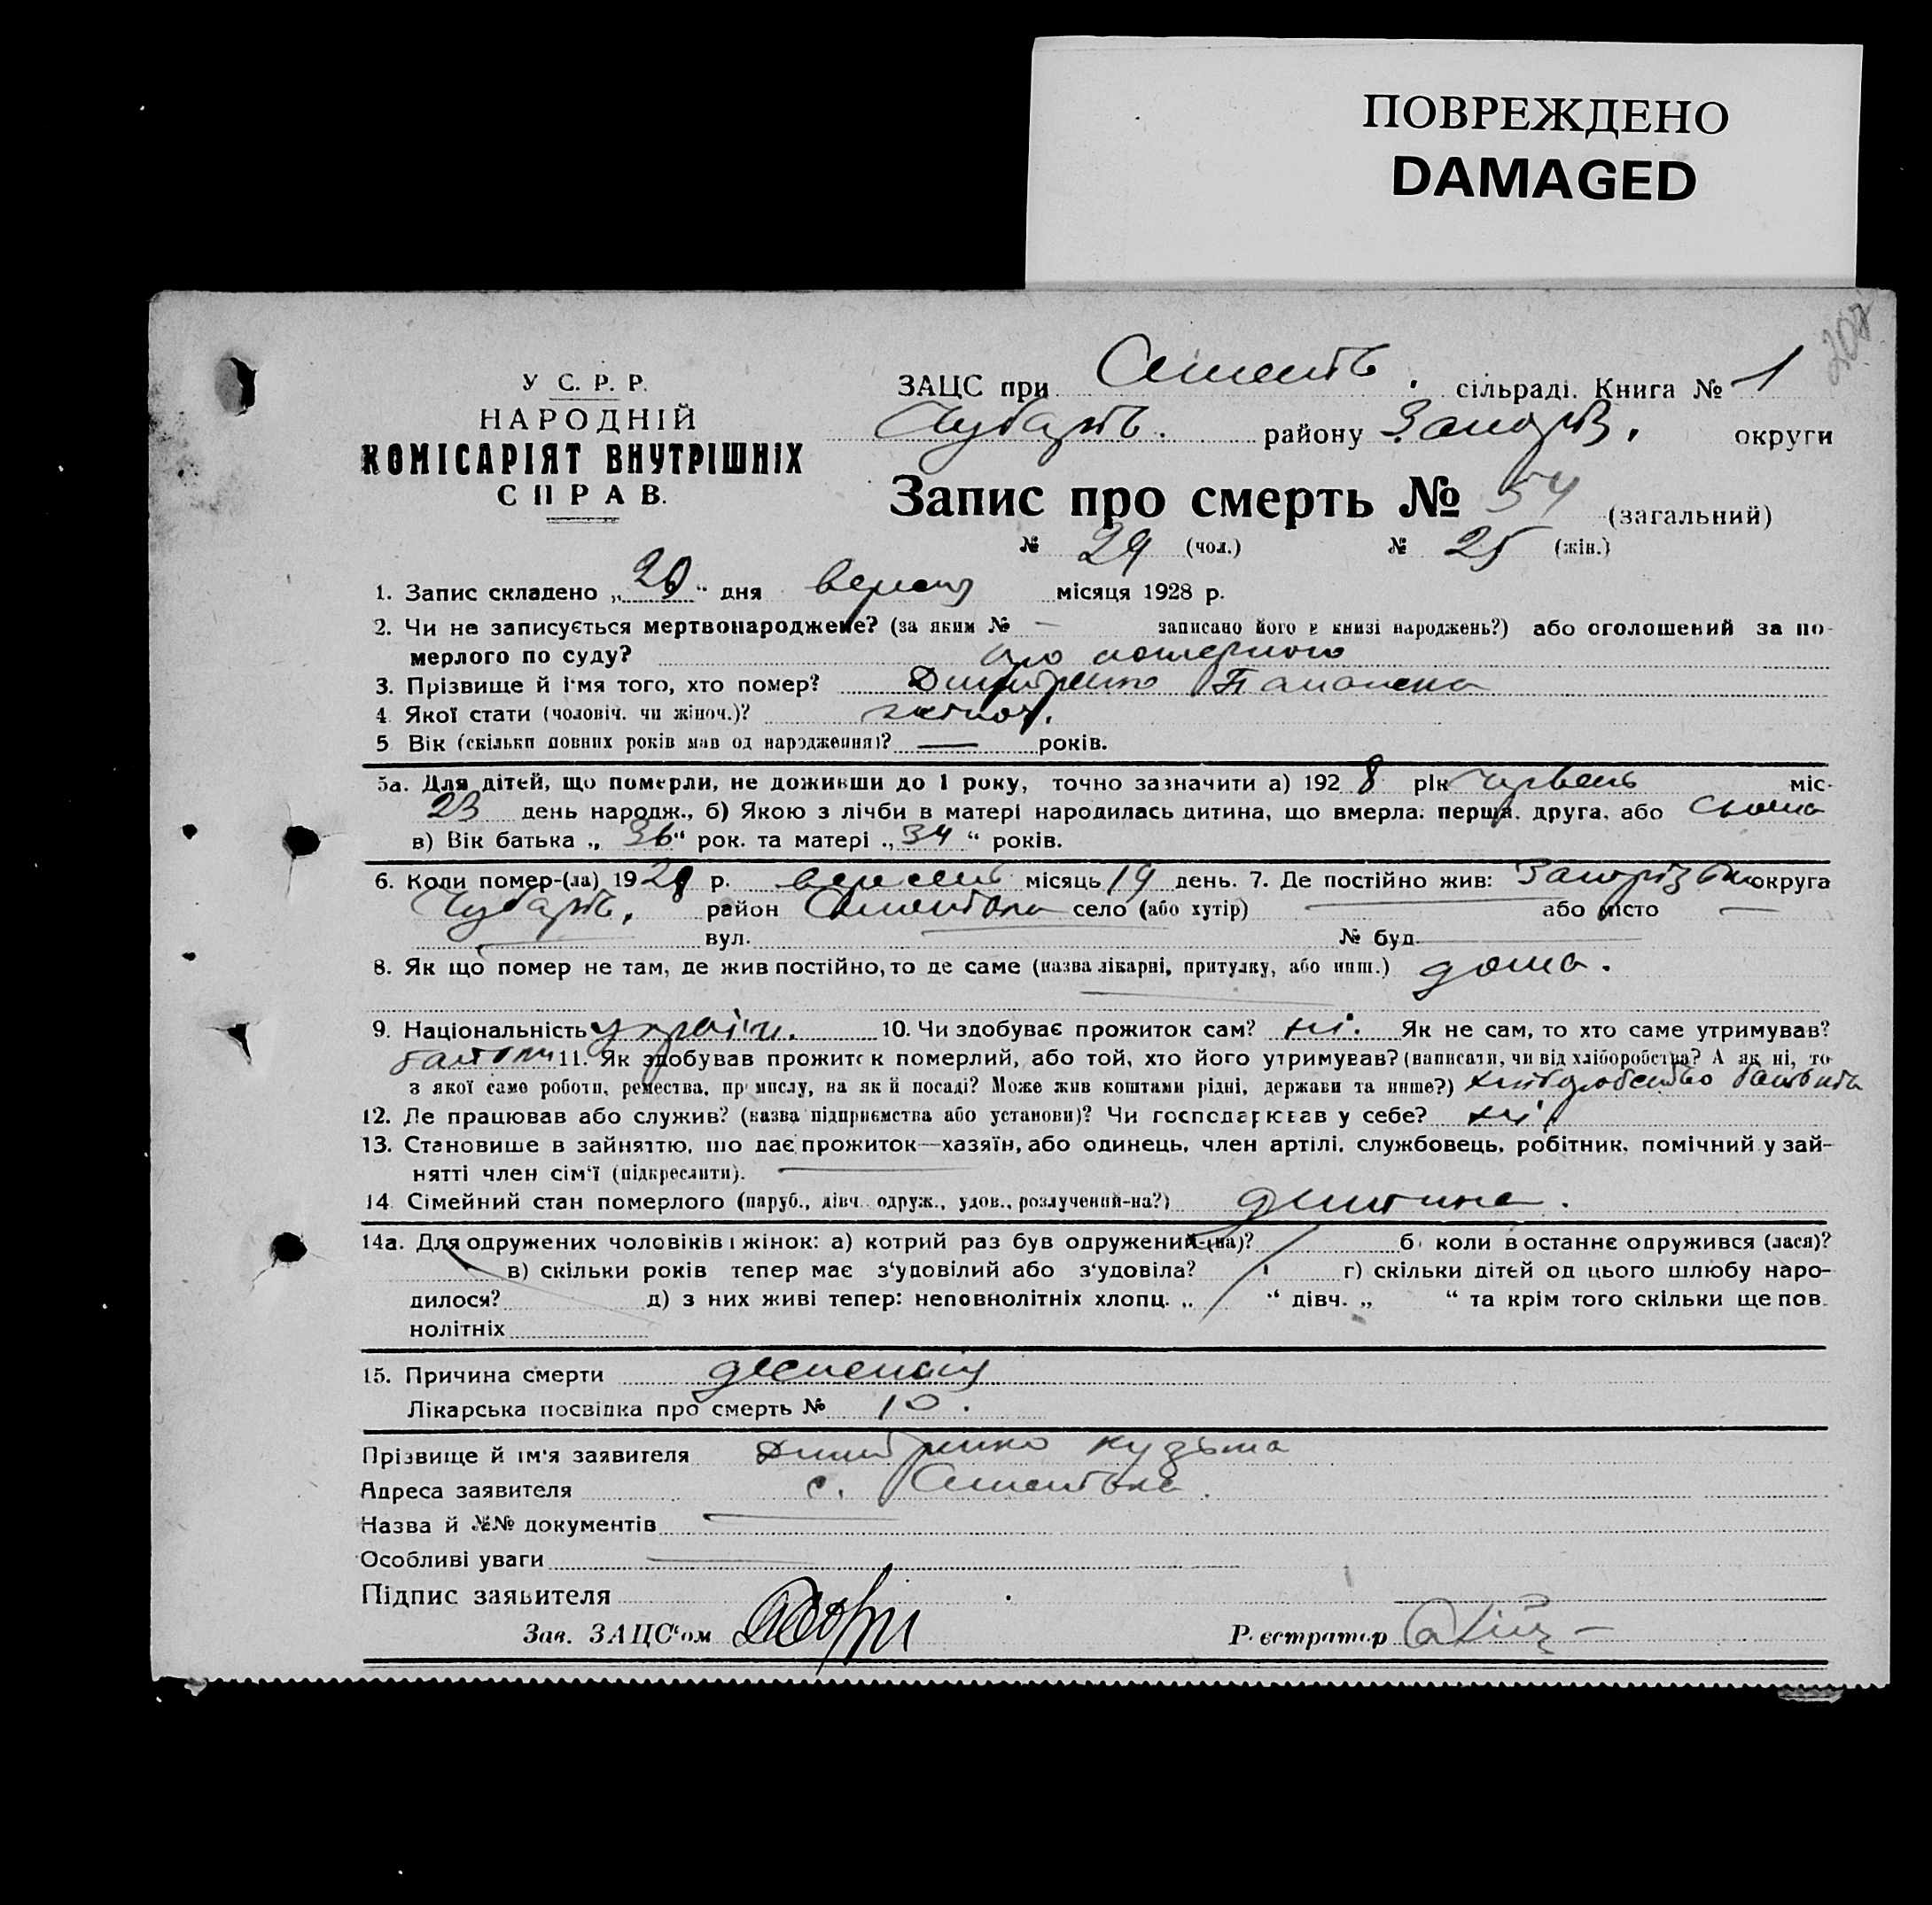 ПОВРЕЖДЕНО
DAMAGED
208
У С. Р. Р.
НАРОДНІЙ
КОМІСАРІЯТ ВНУТРІШНІХ
СПРАВ.
ЗАЦС при сільраді. Книга № 1
Чубарів. району Запоріз. округи
Запис про смерть № 54 (загальний)
№ 29 (чол.) № 25 (жін.)
1. Запис складено „20“ дня вересня місяця 1928 р.
2. Чи не записується мертвонароджене? (за яким № — записано його в книзі народжень?) або оголошений за по-
мерлого по суду? про померлого
3. Прізвище й ім'я того, хто помер? Дмитренко
4 Якої стати (чоловіч. чи жіноч.)? жіноч.
5 Вік (скільки повних років мав од народження)? — років.
5а. Для дітей, що померли, не доживши до 1 року, точно зазначити а) 1928 рік червень міс.
23 день народж., б) Якою з лічби в матері народилась дитина, що вмерла: перша, друга, або сьома
в) Вік батька „36“ рок. та матері „34“ років.
6. Коли помер-(ла) 1928 р. вересень місяць 19 день. 7. Де постійно жив: Запорізька округа
Чубарів. район село (або хутір) або місто —
вул. № буд.
8. Як що помер не там, де жив постійно, то де саме (назва лікарні, притулку, або инш.) дома.
9. Національність україн. 10. Чи здобуває прожиток сам? ні. Як не сам, то хто саме утримував?
батьки 11. Як здобував прожиток померлий, або той, хто його утримував? (написати, чи від хліборобства? А як ні, то
з якої саме роботи, ремества, промислу, на якій посаді? Може жив коштами рідні, держави та инше?) хліборобство батьків
12. Де працював або служив? (назва підприємства або установи)? Чи господарював у себе? ні
13. Становище в зайняттю, що дає прожиток—хазяїн, або одинець, член артілі, службовець, робітник, помічний у зай-
нятті член сім'ї (підкреслити).
14 Сімейний стан померлого (паруб., дівч. одруж., удов., розлучений-на?) дитина.
14а. Для одружених чоловіків і жінок: а) котрий раз був одружений (на)? б) коли востаннє одружився (лася)?
в) скільки років тепер має з'удовілий або з'удовіла? г) скільки дітей од цього шлюбу наро-
дилося? д) з них живі тепер: неповнолітніх хлопц. „ “ дівч. „ “ та крім того скільки ще пов.
нолітніх
15. Причина смерти деспепсія
Лікарська посвідка про смерть № 10.
Прізвище й ім'я заявителя Дмитренко Кузьма
Адреса заявителя с.
Назва й №№ документів
Особливі уваги
Підпис заявителя
Зав. ЗАЦС'ом
Реєстратор